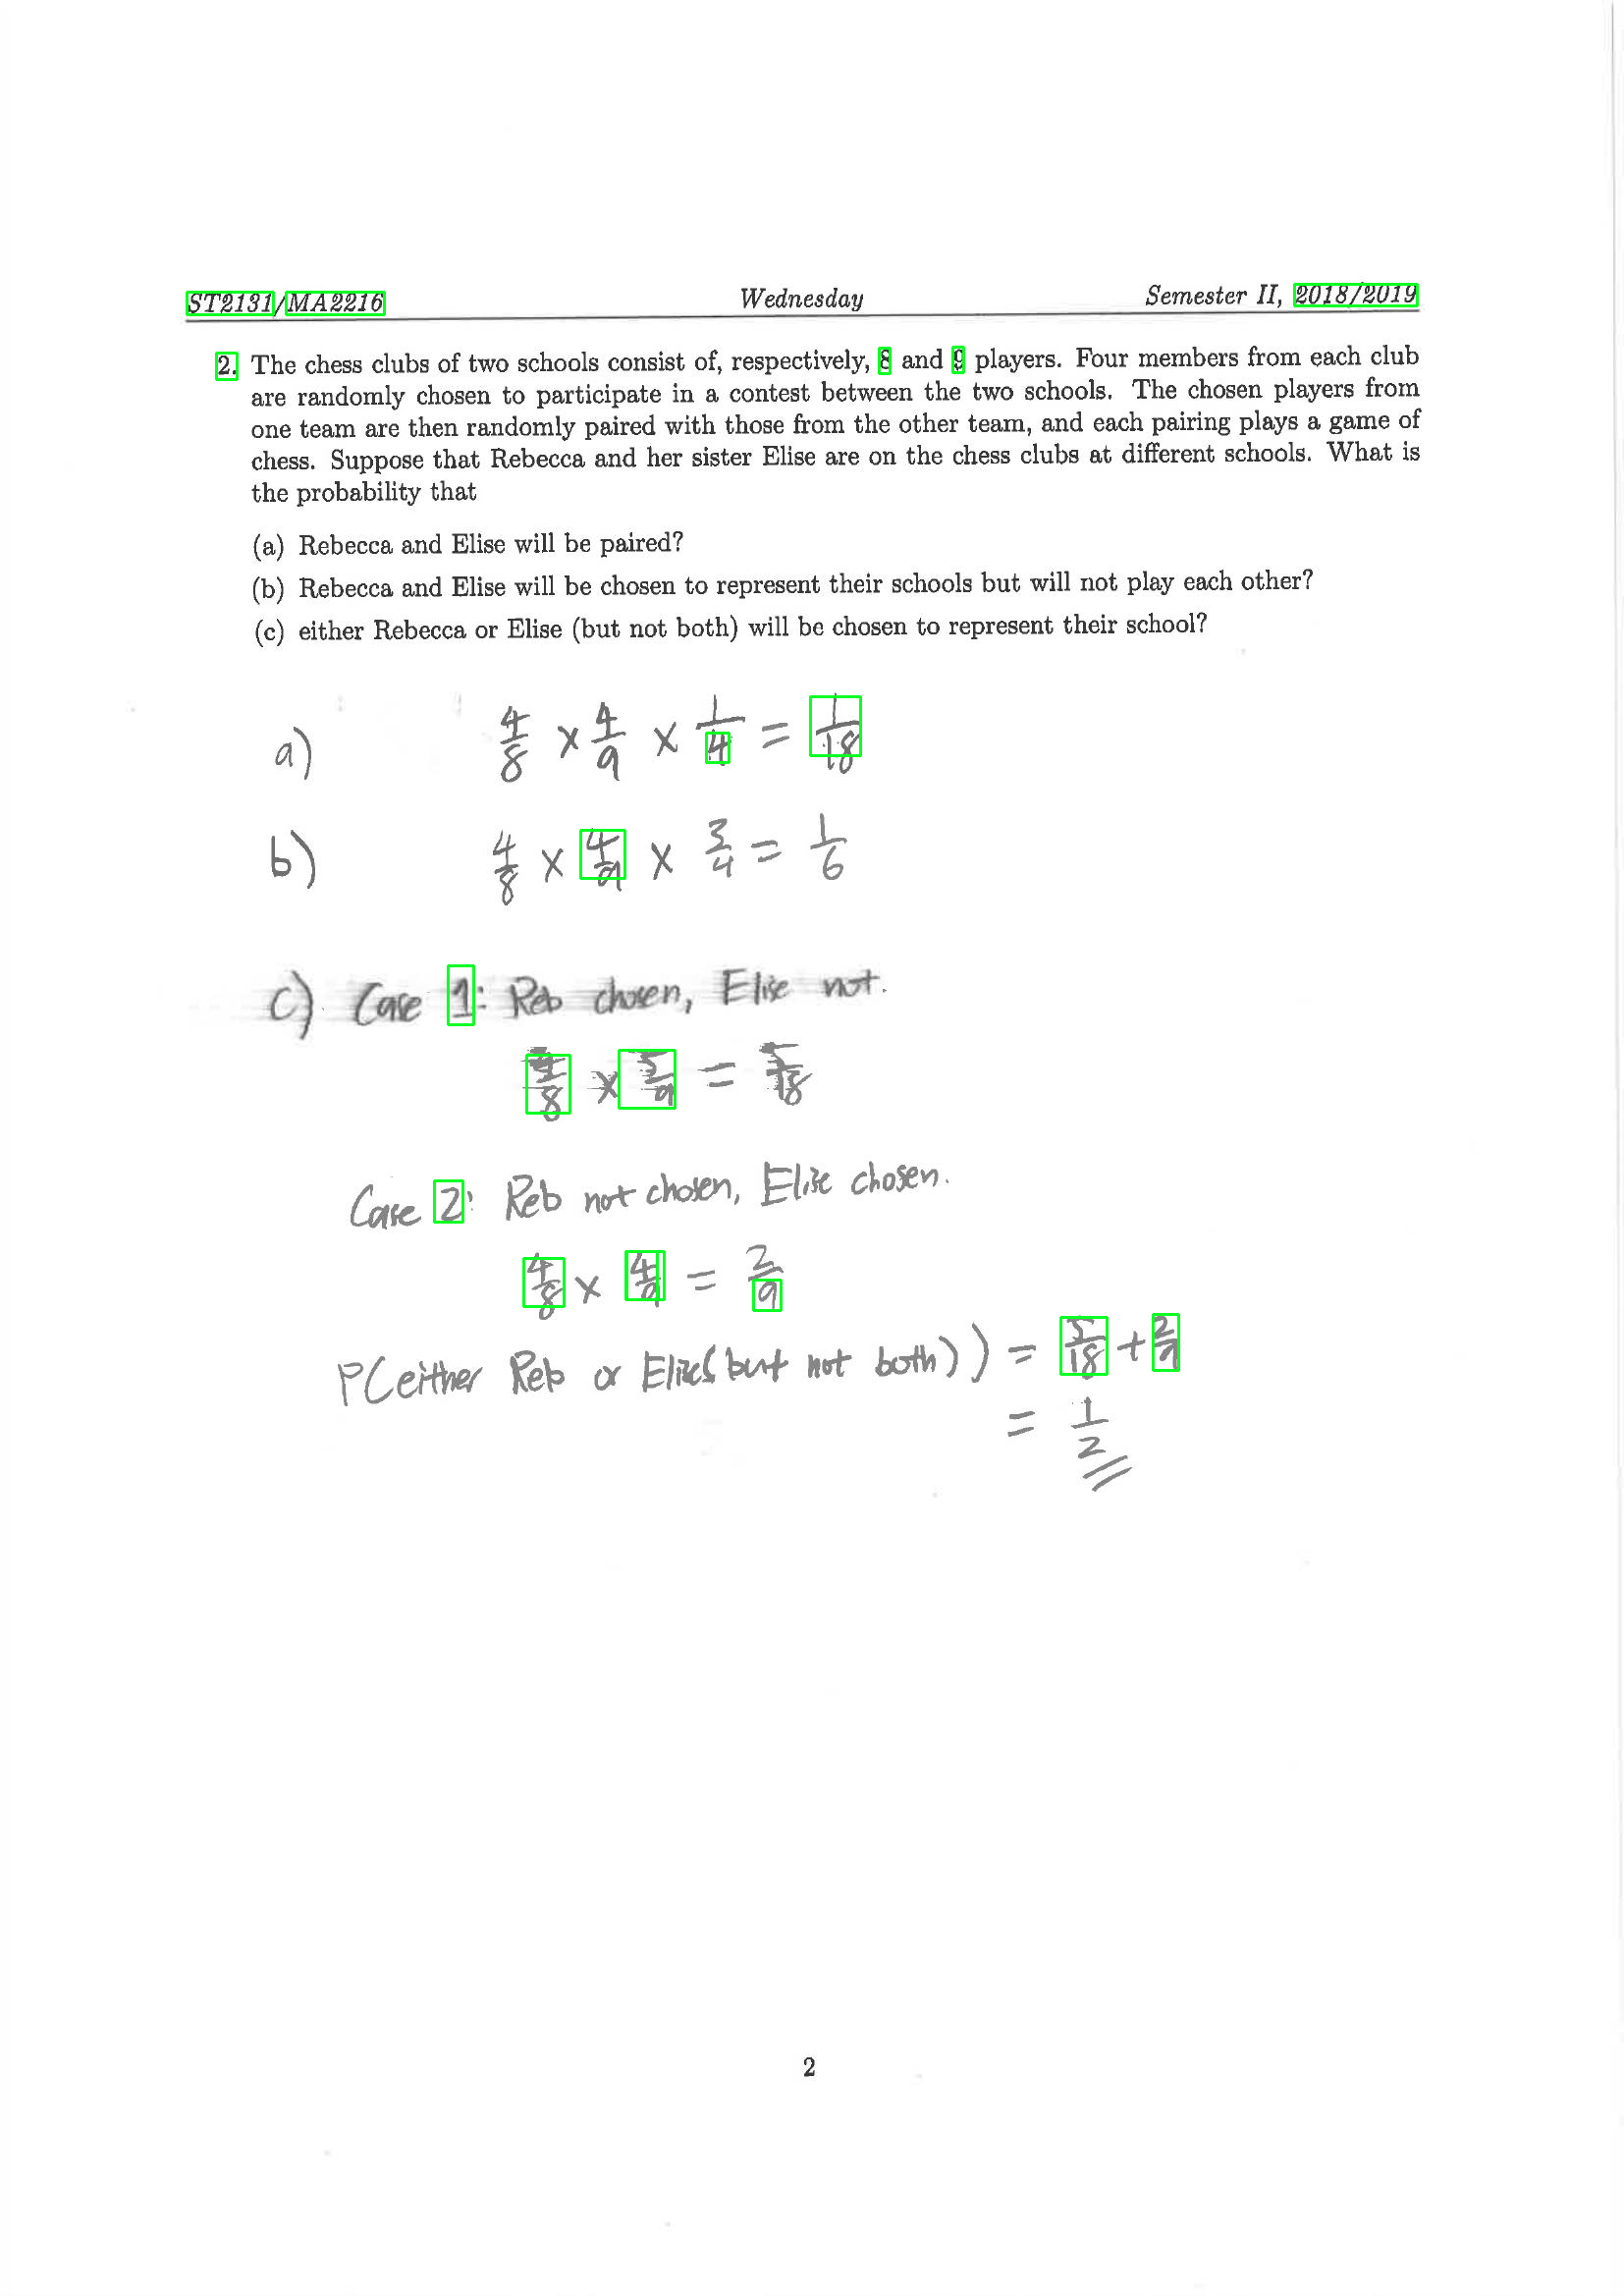 ST2131/MA2216 Wednesday Semester II, 2018/2019
2. The chess clubs of two schools consist of, respectively, 8 and 9 players. Four members from each club
are randomly chosen to participate in a contest between the two schools. The chosen players from
one team are then randomly paired with those from the other team, and each pairing plays a game of
chess. Suppose that Rebecca and her sister Elise are on the chess clubs at different schools. What is
the probability that
(a) Rebecca and Elise will be paired?
(b) Rebecca and Elise will be chosen to represent their schools but will not play each other?
(c) either Rebecca or Elise (but not both) will be chosen to represent their school?
a) 4/8 × 4/9 × 1/4 = 1/18
b) 4/8 × 4/9 × 3/4 = 1/6
c) Case 1: Reb chosen, Elise not.
4/8 × 5/9 = 5/18
Case 2: Reb not chosen, Elise chosen.
4/8 × 4/9 = 2/9
P(either Reb or Elise(but not both)) = 5/18 + 2/9
= 1/2
2